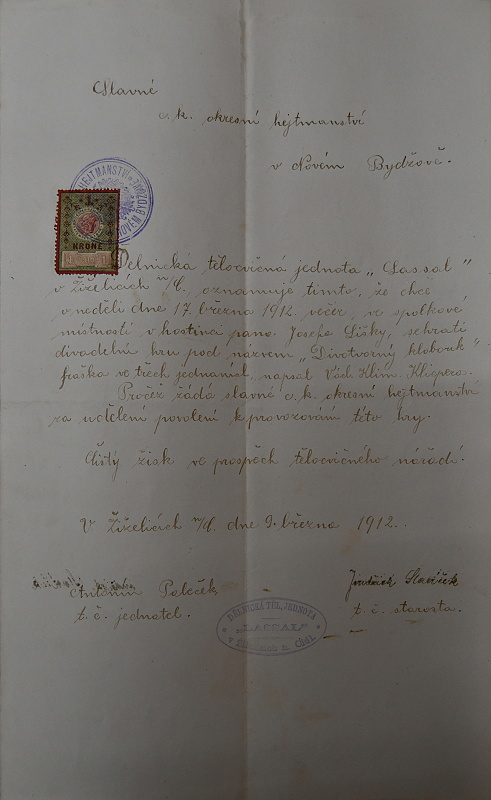 Slavné
c. k. okresní hejtmanství
v Novém Bydžově.
HEJTMANSTVÍ
1
KRONE
Dělnická tělocvičná jednota „Lassal"
v Žiželicích n/C. oznamuje tímto, že chce
v neděli dne 17. března 1912. večer, ve spolkové
místnosti v hostinci pana Josefa Lišky, sehrati
divadelní hru pod názvem „Divotvorný klobouk"
fraška ve třech jednáních, napsal Václ. Klim. Klicpera.
Pročež žádá slavné c. k. okresní hejtmanství
za udělení povolení k provozování této hry.
Čistý zisk ve prospěch tělocvičného nářadí.
V Žiželicích n/C. dne 9. března 1912.
Antonín Paleček
t. č. jednatel.
Slavíček
t. č. starosta.
DĚLNICKÁ TĚL. JEDNOTA
„LASSAL"
v Žiželicích n. Cidl.